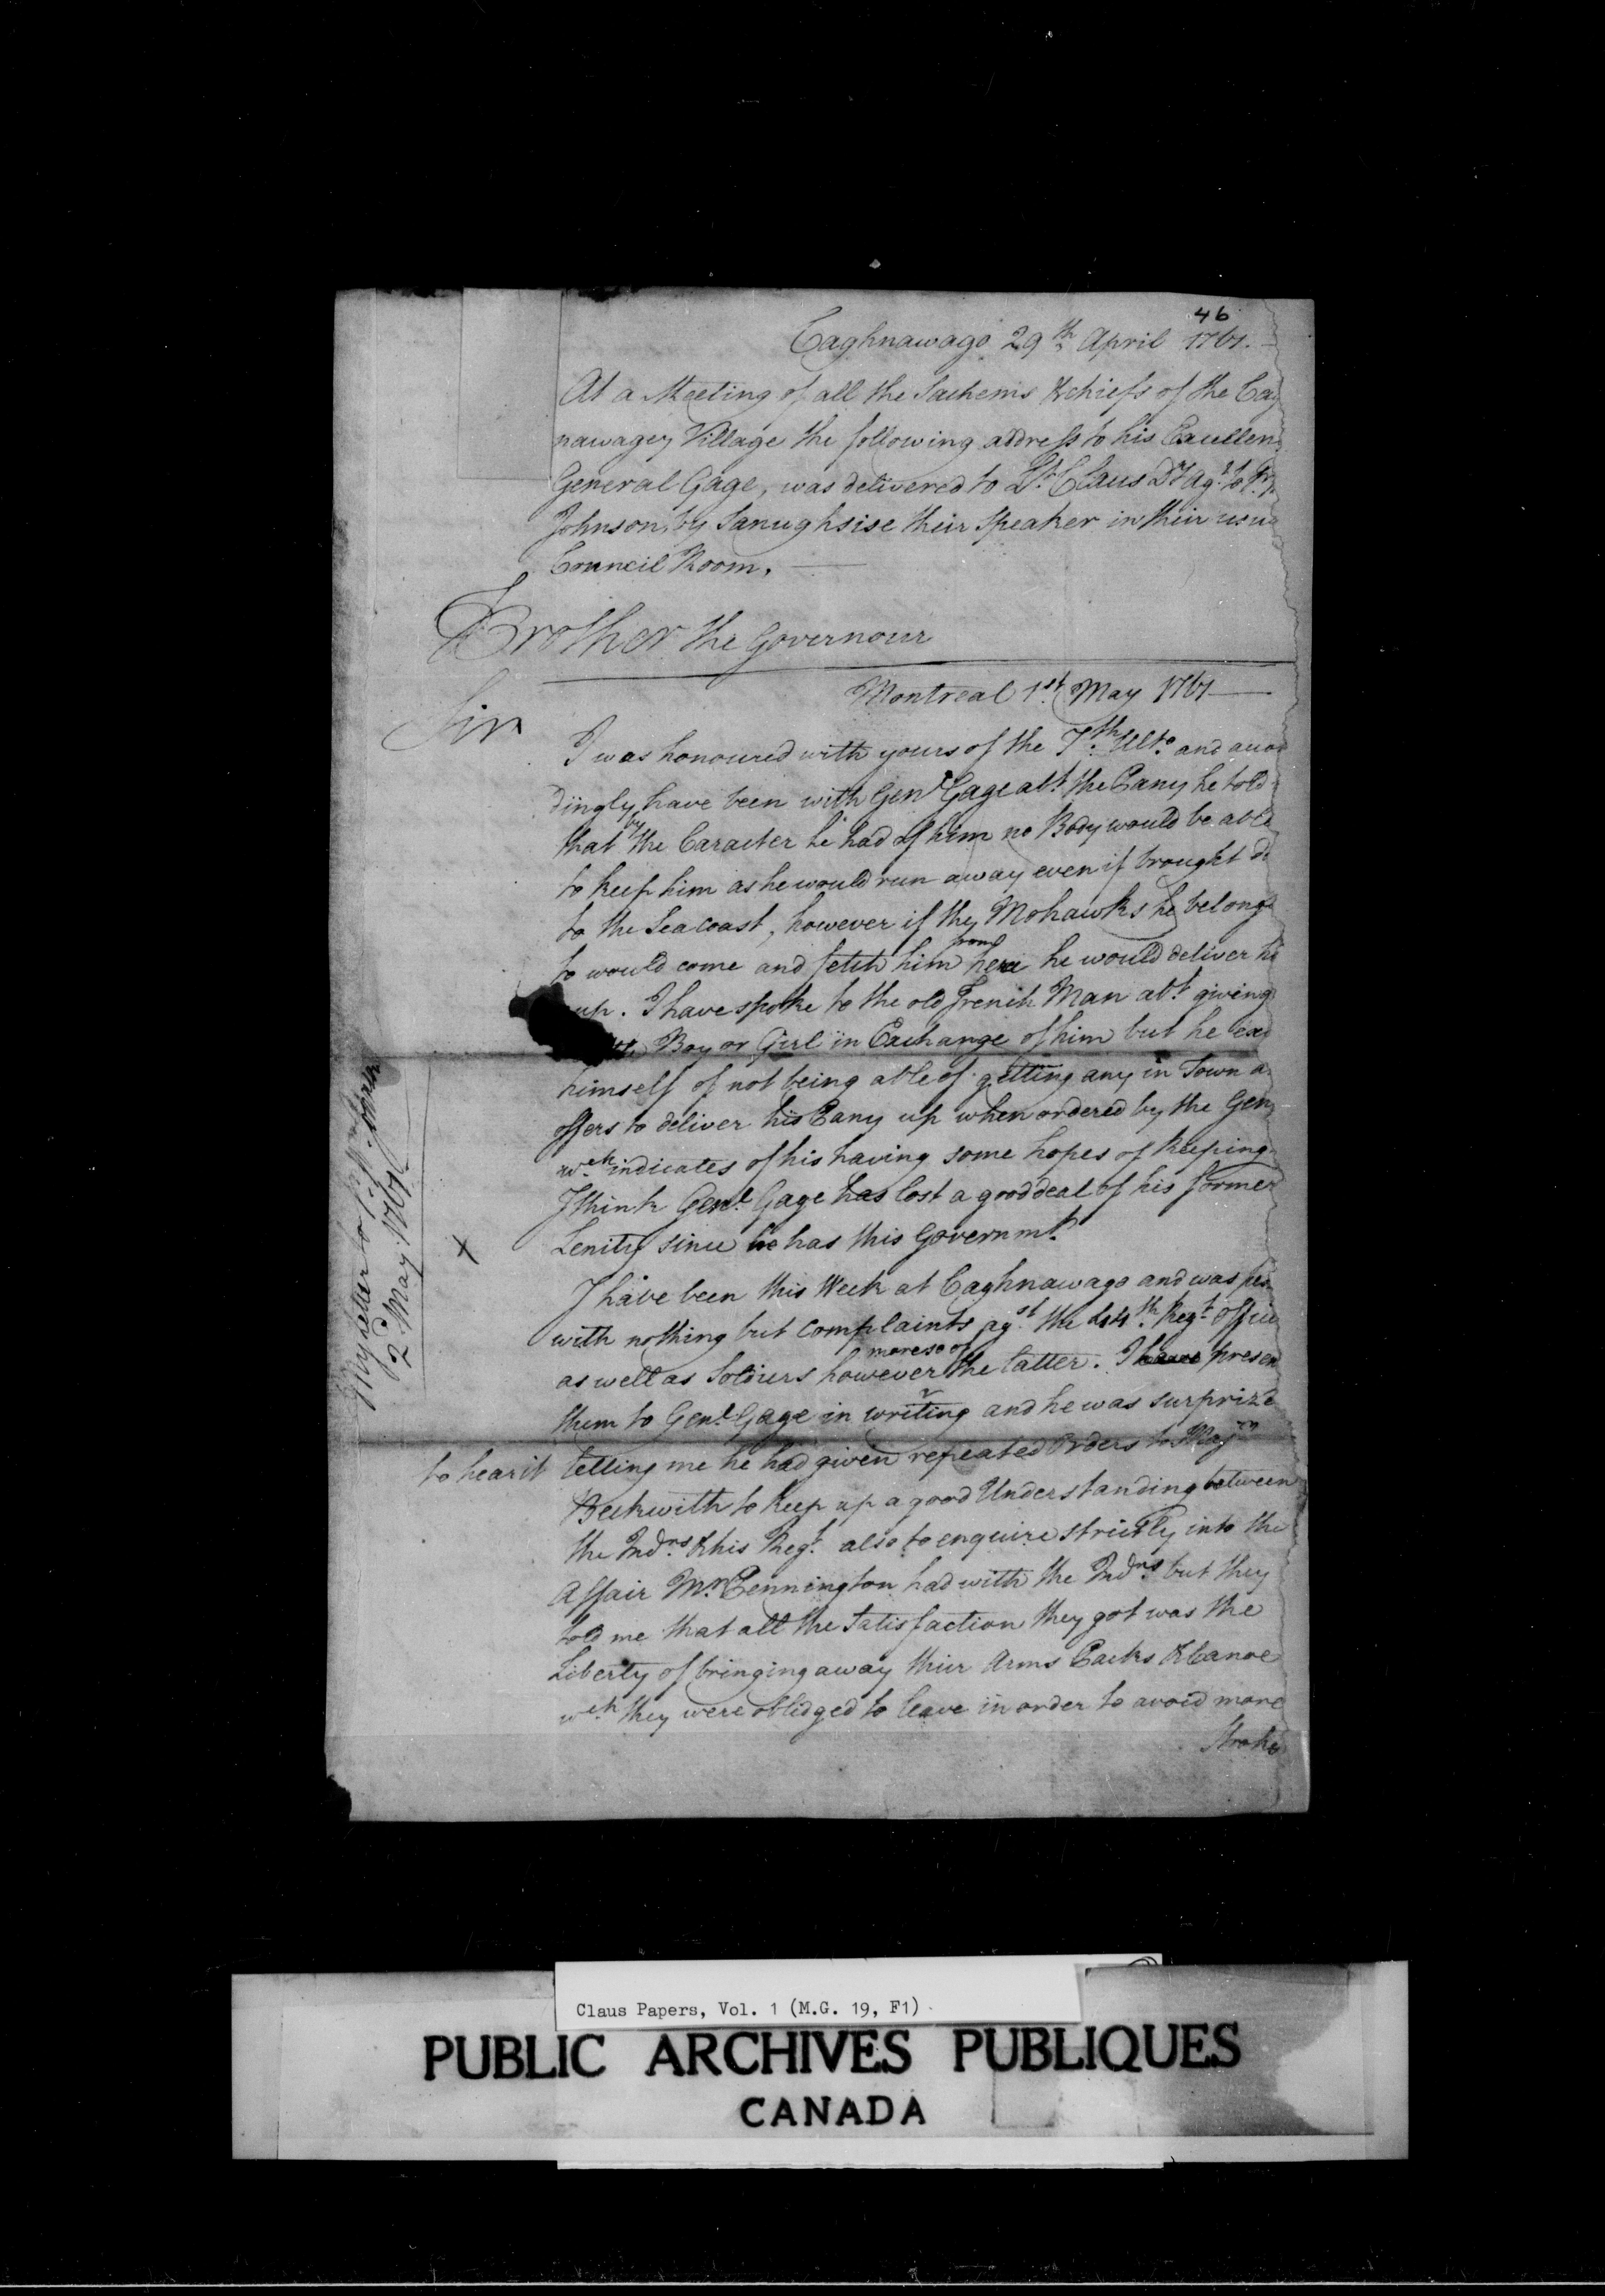 46
Caghnawago 29th April 1761.
At a Meeting of all the Sachems & chiefs of the Cag
nawagey Village the following address to his Excellen
General Gage, was delivered to Lt. Claus Dy Agt. to Sr. Wm.
Johnson, by Sanughsise their Speaker in their usu
Council Room.
Brother the Governour
Montreal 1st. May 1761
Sir
I was honoured with yours of the 7th. Ulto. and accor
dingly have been with Genl. Gage abt. the Pany he told
that by the Caracter he had of him no Body would be able
to keep him as he would run away even if brought d
to the Sea coast, however if the Mohawks he belongs
to would come and fetch him from here he would deliver hi
up. I have spoke to the old French Man abt. giving
Boy or Girl in Exchange of him but he exc
himself of not being able of getting any in Town a
offers to deliver his Pany up when ordered by the Gen
wch. indicates of his having some hopes of keeping
I think Genl. Gage has lost a good deal of his former
Lenity since he has this Governmt.
I have been this Week at Caghnawago and was pes
with nothing but Complaints agst. the 44th. Regt. Office
as well as Soldiers however more so of the latter. I have presen
them to Genl. Gage in writing and he was surprize
to hear it telling me he had given repeated Orders to Majr.
Beckwith to keep up a good Understanding between
the Indns. & his Regt. also to enquire strictly into the
Affair Mr. Pennington had with the Indns. but they
told me that all the Satisfaction they got was the
Liberty of bringing away their Arms Packs & Canoe
wch. they were oblidged to leave in order to avoid more
Stroke
My Letter to Sr. Wm. Johnson
2d May 1761
X
Claus Papers, Vol. 1 (M.G. 19, F1)
PUBLIC ARCHIVES PUBLIQUES
CANADA